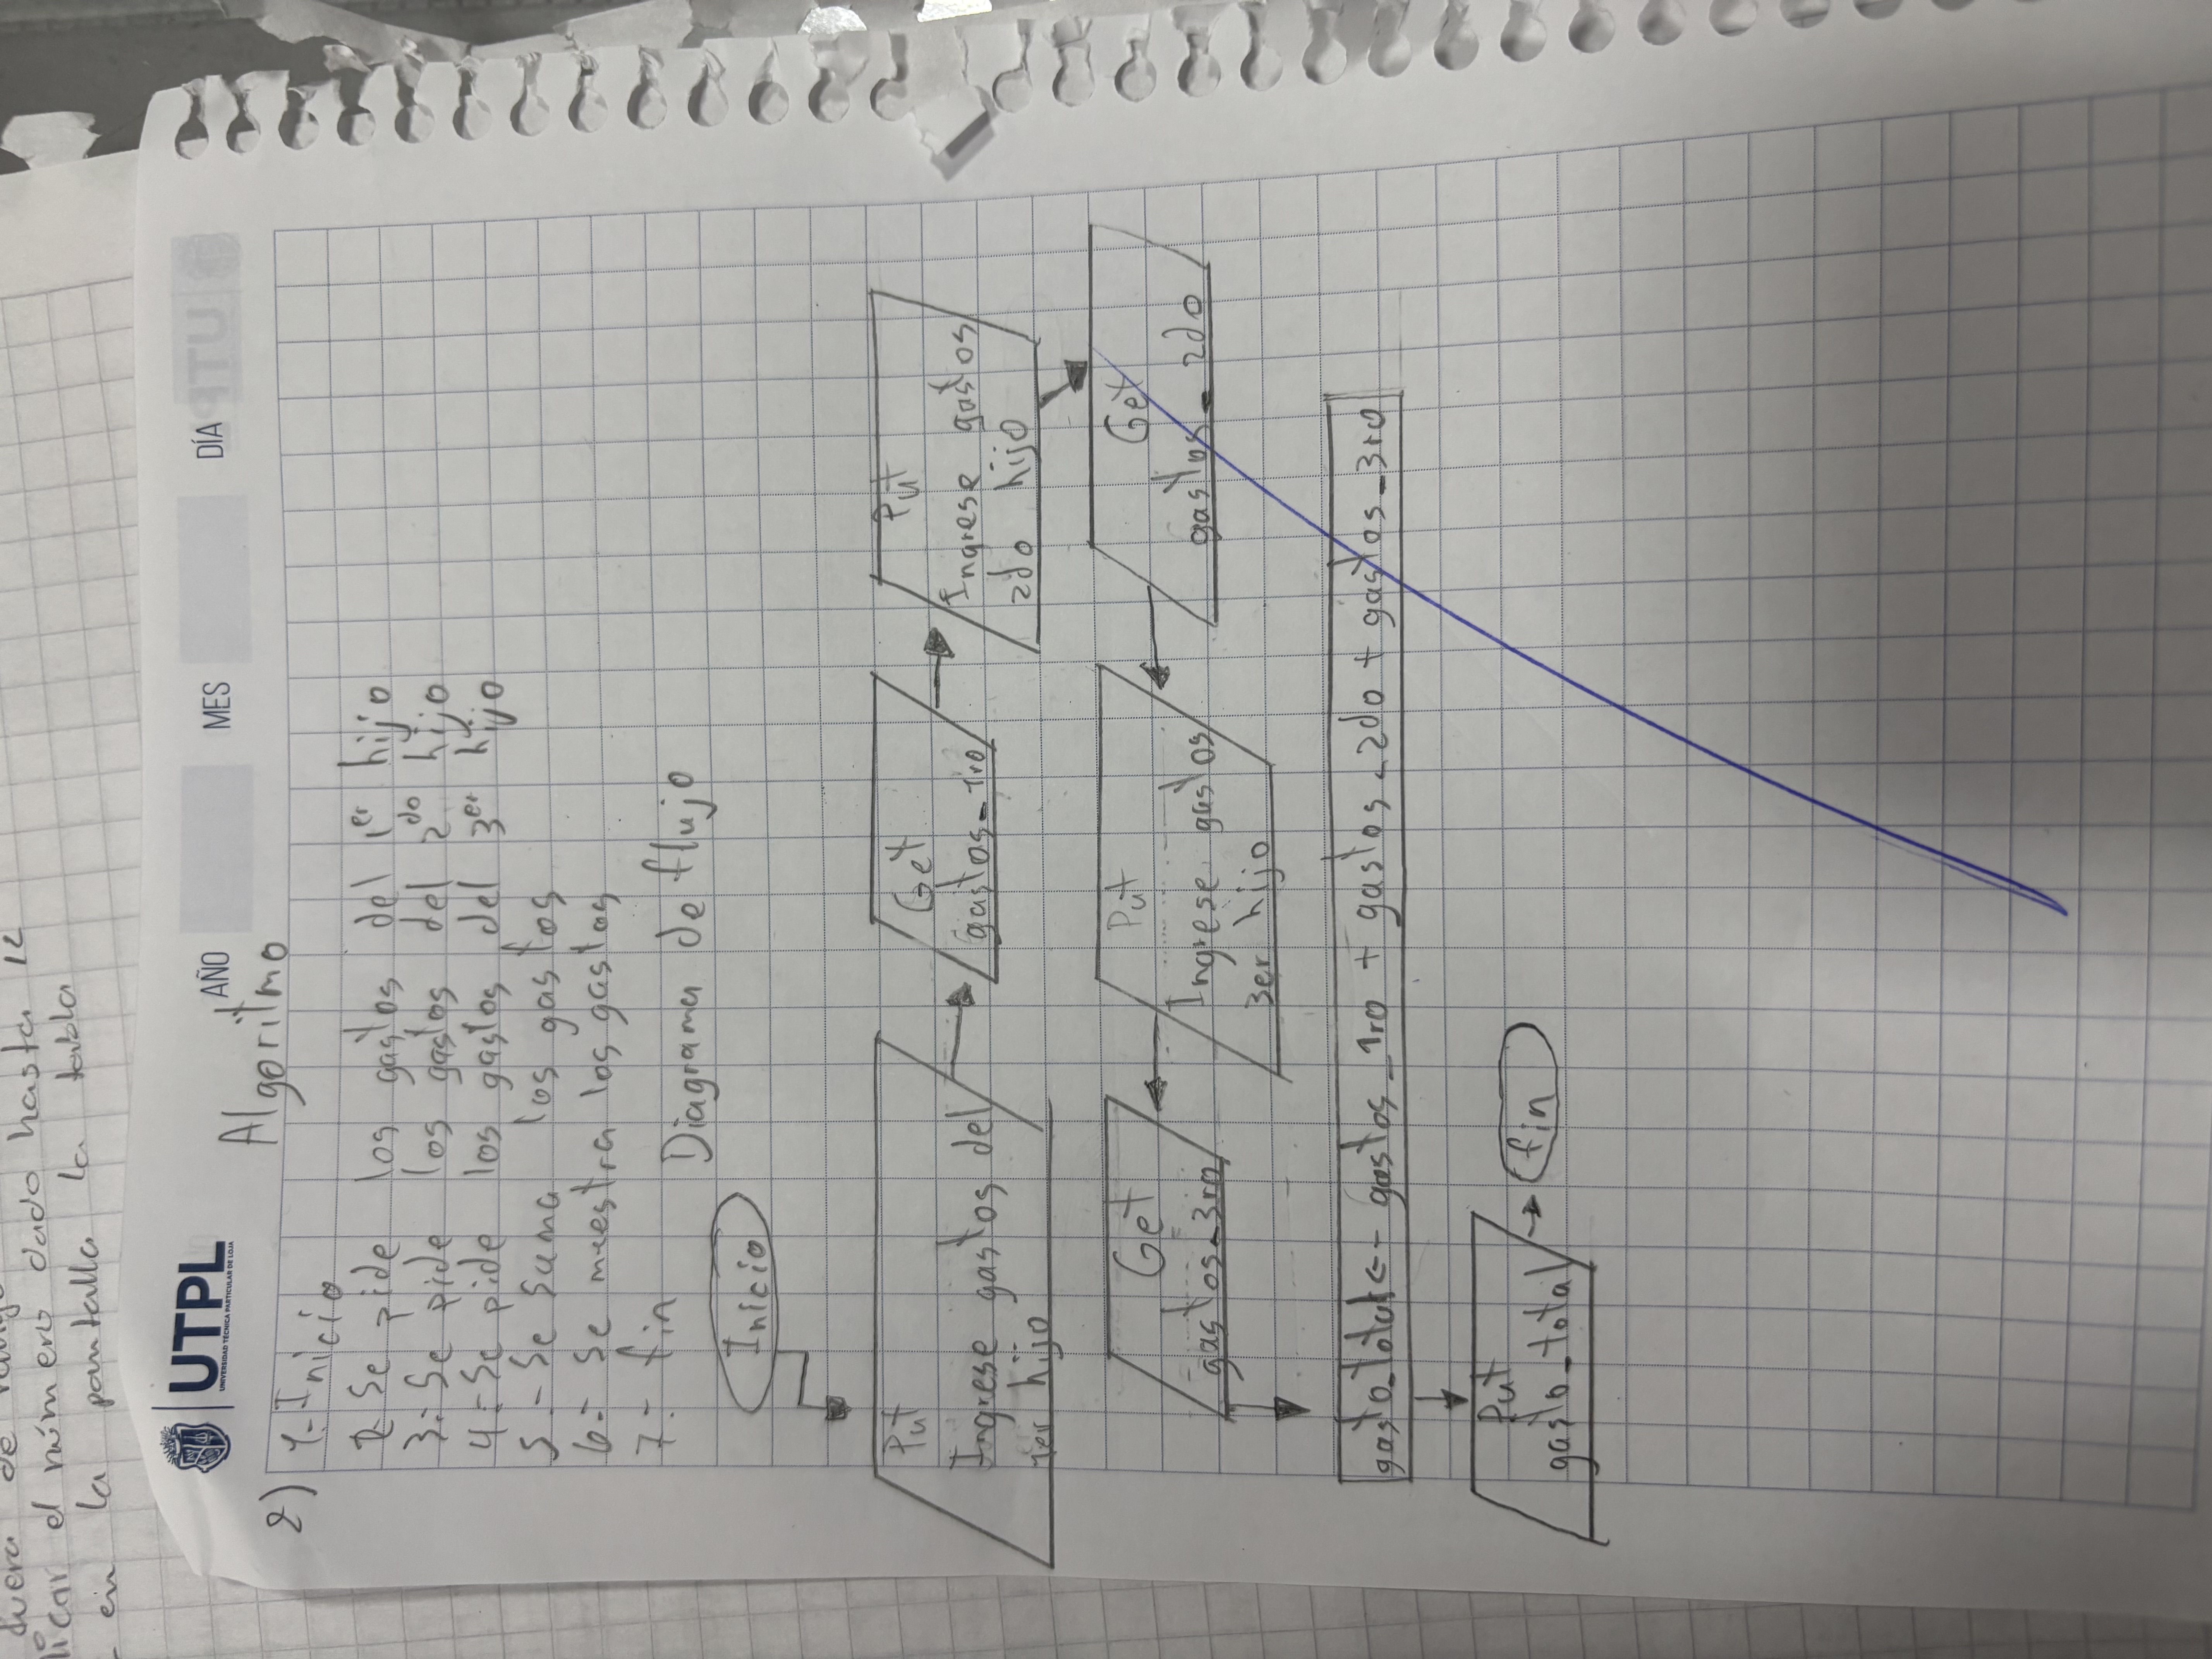 fuera de rango
licar el número dado hasta 12
- en la pantalla la tabla
UTPL
UNIVERSIDAD TÉCNICA PARTICULAR DE LOJA
AÑO MES DÍA
Algoritmo
2)
1.- Inicio
2.- Se pide los gastos del 1er hijo
3.- Se pide los gastos del 2do hijo
4.- Se pide los gastos del 3er hijo
5.- Se suma los gastos
6.- Se muestra los gastos
7.- fin
Diagrama de flujo
Inicio
Put
Ingrese gastos del
1er hijo
Get
gastos_1ro
Put
Ingrese gastos
2do hijo
Get
gastos_2do
Put
Ingrese gastos
3er hijo
Get
gastos_3ro
gasto_total <- gastos_1ro + gastos_2do + gastos_3ro
Put
gasto_total
fin